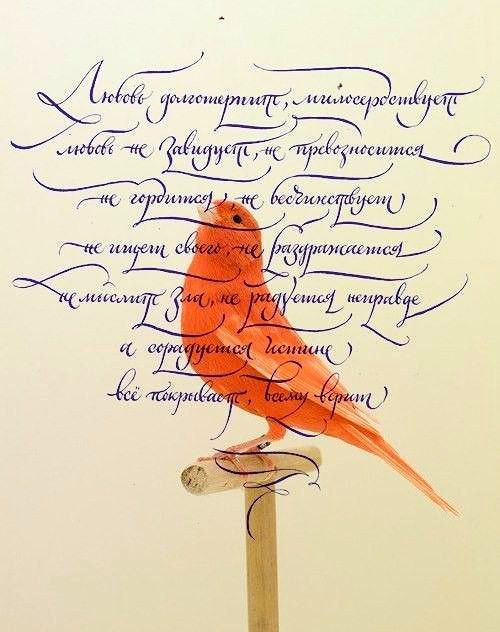 Любовь долготерпит, милосердствует
любовь не завидует, не превозносится
не гордится, не бесчинствует
не ищет своего, не раздражается
не мыслит зла, не радуется неправде
а сорадуется истине
всё покрывает, всему верит